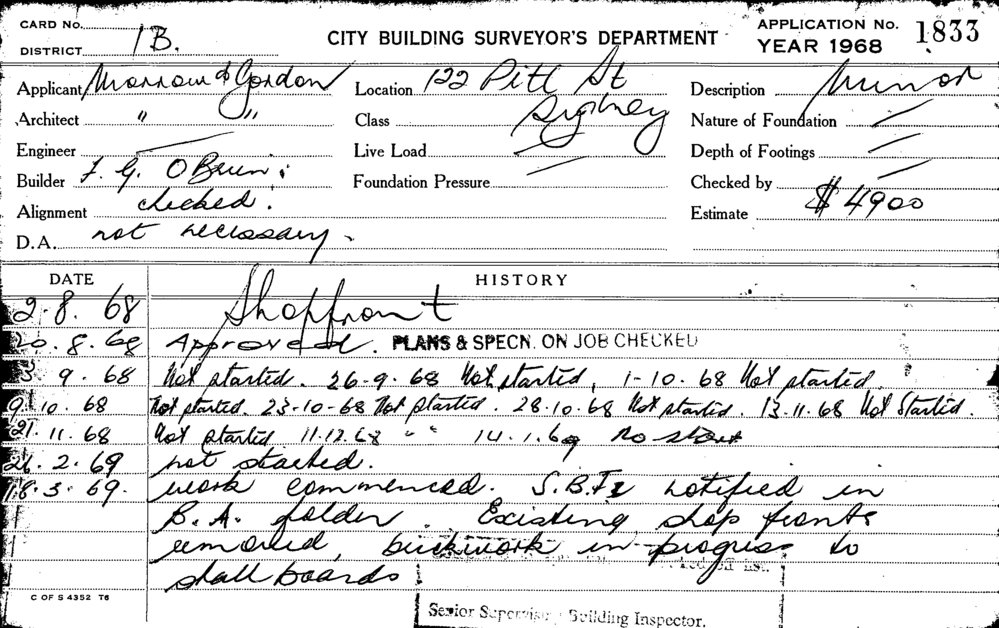 CARD No.
DISTRICT 1B.
CITY BUILDING SURVEYOR'S DEPARTMENT
APPLICATION No. 1833
YEAR 1968
Applicant Morrow & Gordon
Location 122 Pitt St
Description Minor
Architect " "
Class Sydney
Nature of Foundation
Engineer
Live Load
Depth of Footings
Builder F. G. O'Brien.
Foundation Pressure
Checked by
Alignment checked.
Estimate $4900
D.A. not necessary.
DATE HISTORY
2.8.68 Shopfront
20.8.68 Approved. PLANS & SPECN. ON JOB CHECKED
3.9.68 Not started. 26-9-68 Not started, 1-10-68 Not started
9.10.68 Not started. 23-10-68 Not started. 28.10.68 Not started. 13.11.68 Not Started.
21.11.68 Not started 11.12.68 " " 14.1.69 No start
26.2.69 not started.
18.3.69. work commenced. notified in
B.A. folder. Existing shop fronts
removed, brickwork in progress to
stall boards
C OF S 4352 T6
Senior Supervisor Building Inspector.